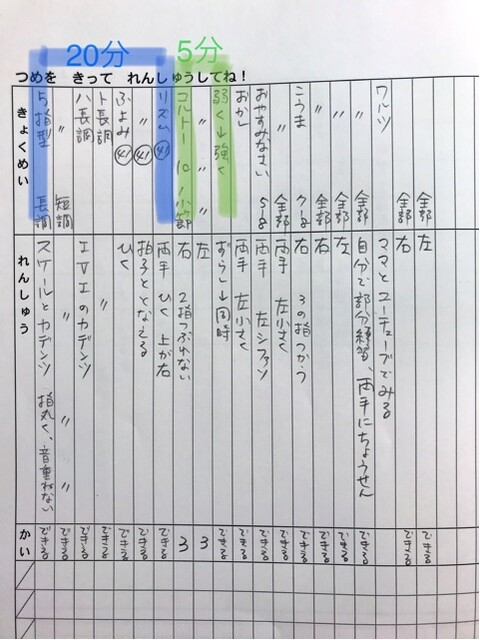 20分
5分
つめを きって れんしゅうしてね！
きょくめい
れんしゅう
かい
5指型 長調 スケールとカデンツ 指丸く、音重ねない できる
〃 短調 〃 〃 できる
ハ長調 ⅠⅤⅠのカデンツ できる
ト長調 〃 できる
ふよみ ㊶ ひく できる
〃 ㊶ 拍子ととなえる できる
リズム ㊶ 両手 ひく 上が右 できる
コルトー 10 1小節 右 2指つぶれない 3
〃 〃 左 3
弱く→強く ずらし→同時 できる
おかし 両手 左小さく できる
おやすみなさい 5-8 両手 左シファソ できる
〃 全部 両手 左小さく できる
こうま 7-8 右 3の指つかう できる
〃 全部 右 できる
〃 全部 左 できる
〃 全部 自分で部分練習、両手にちょうせん できる
ワルツ ママとユーチューブでみる
全部 右 できる
全部 左 できる